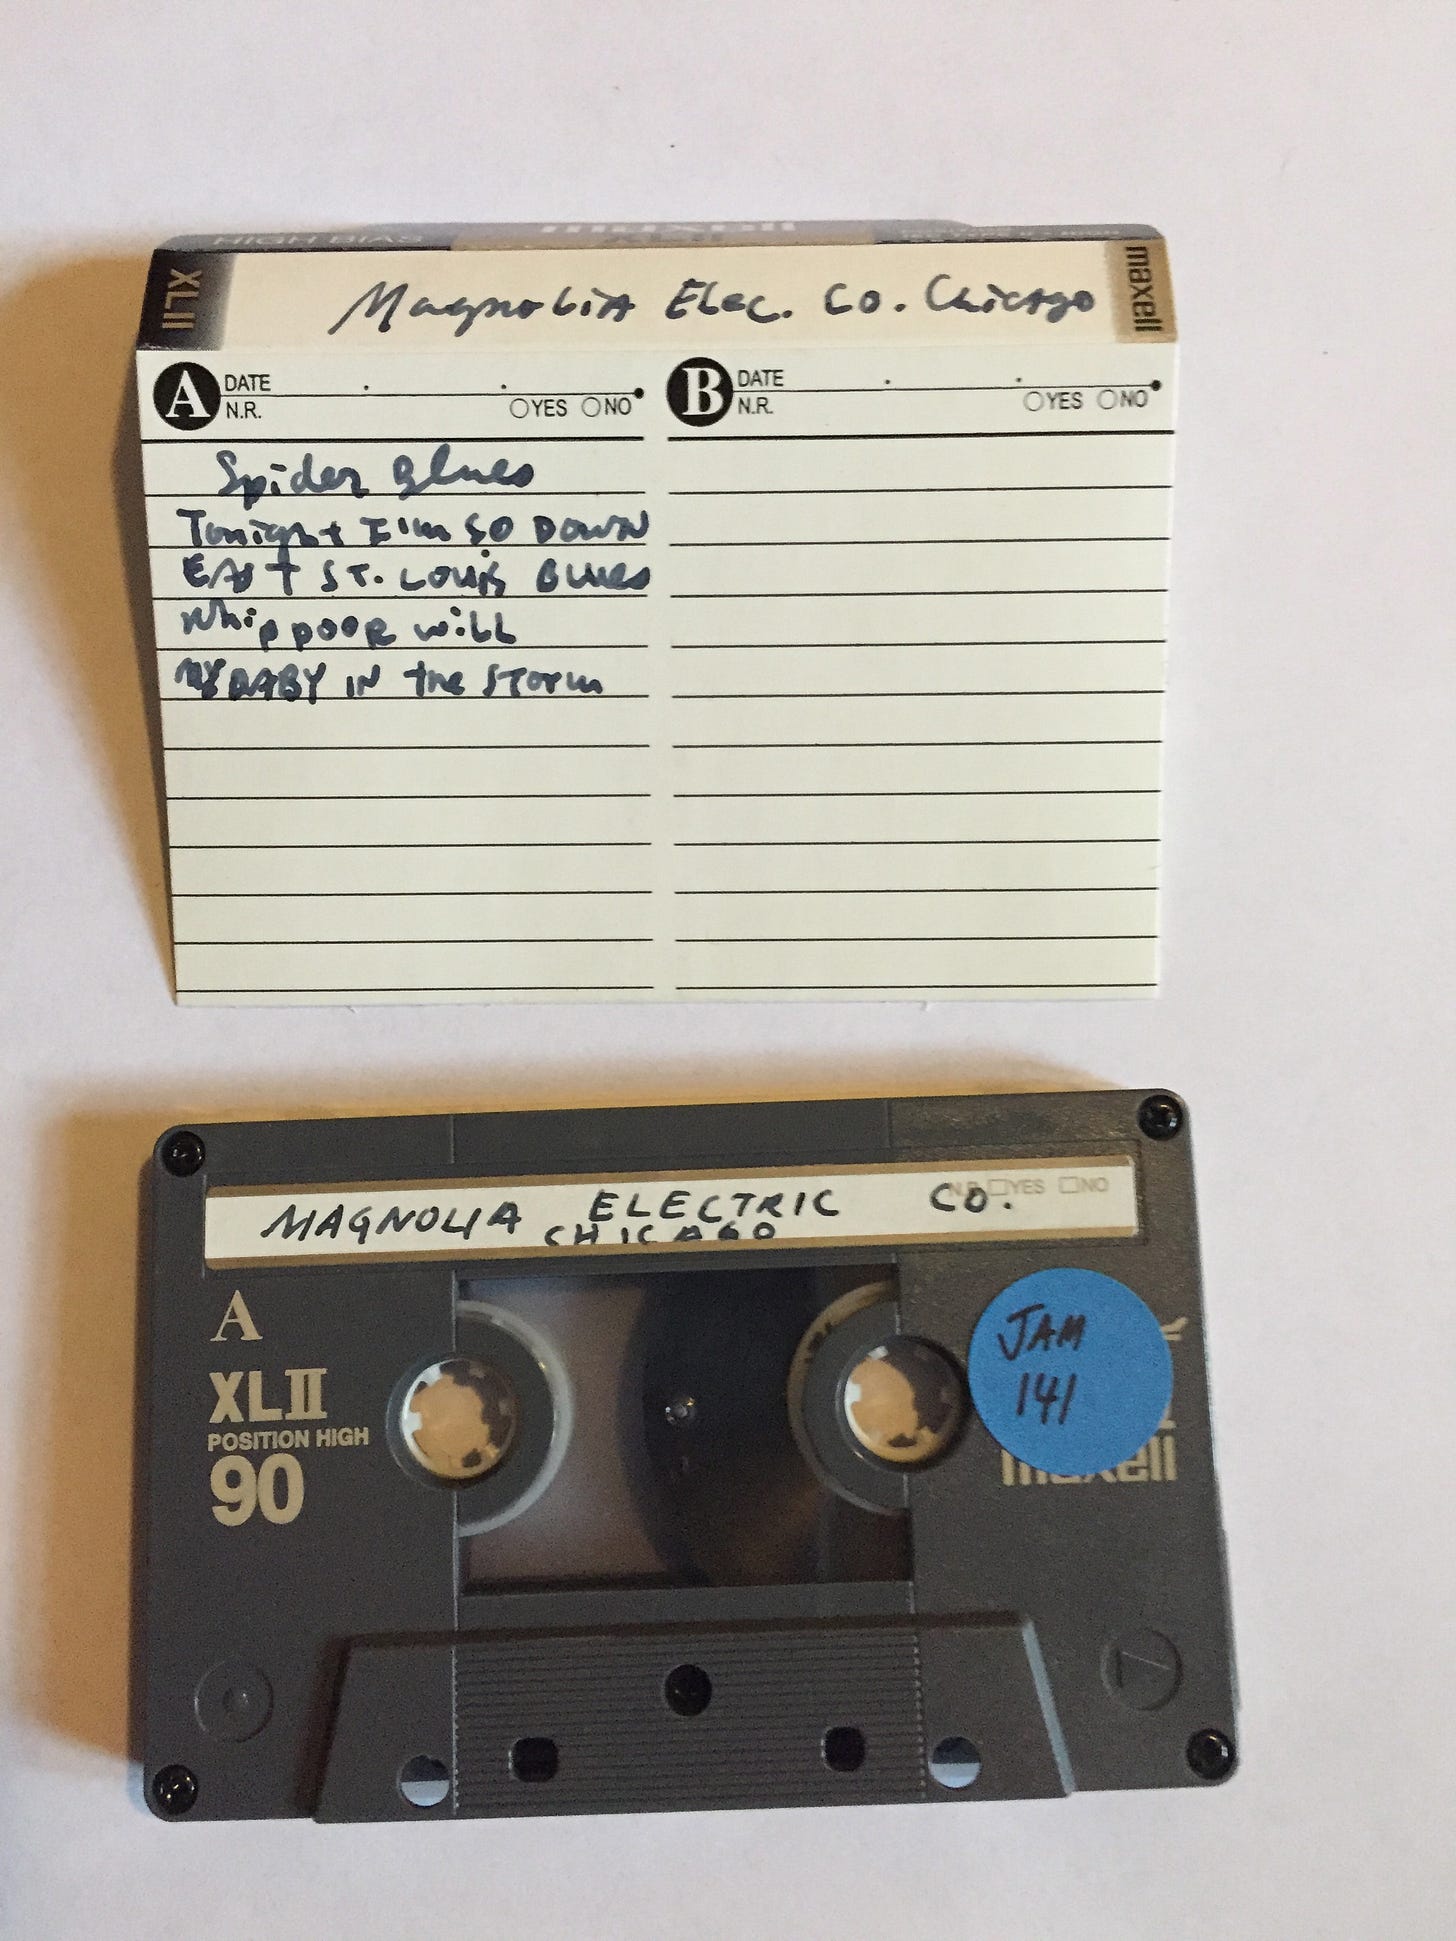 maxell
XLII
XLII
Magnolia Elec. Co. Chicago
maxell
A DATE
N.R. YES NO
B DATE
N.R. YES NO
Spider Blues
Tonight I'm so DOWN
EAST ST. LOUIS BLUES
Whippoor will
MY BABY IN the STORM
MAGNOLIA ELECTRIC CO.
CHICAGO
N.R. YES NO
A
XLII
POSITION HIGH
90
JAM
141
maxell